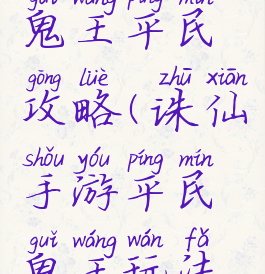 guǐ wáng píng mín
鬼王平民
gōng lüè zhū xiān
攻略(诛仙
shǒu yóu píng mín
手游平民
guǐ wáng wán fǎ
鬼王玩法